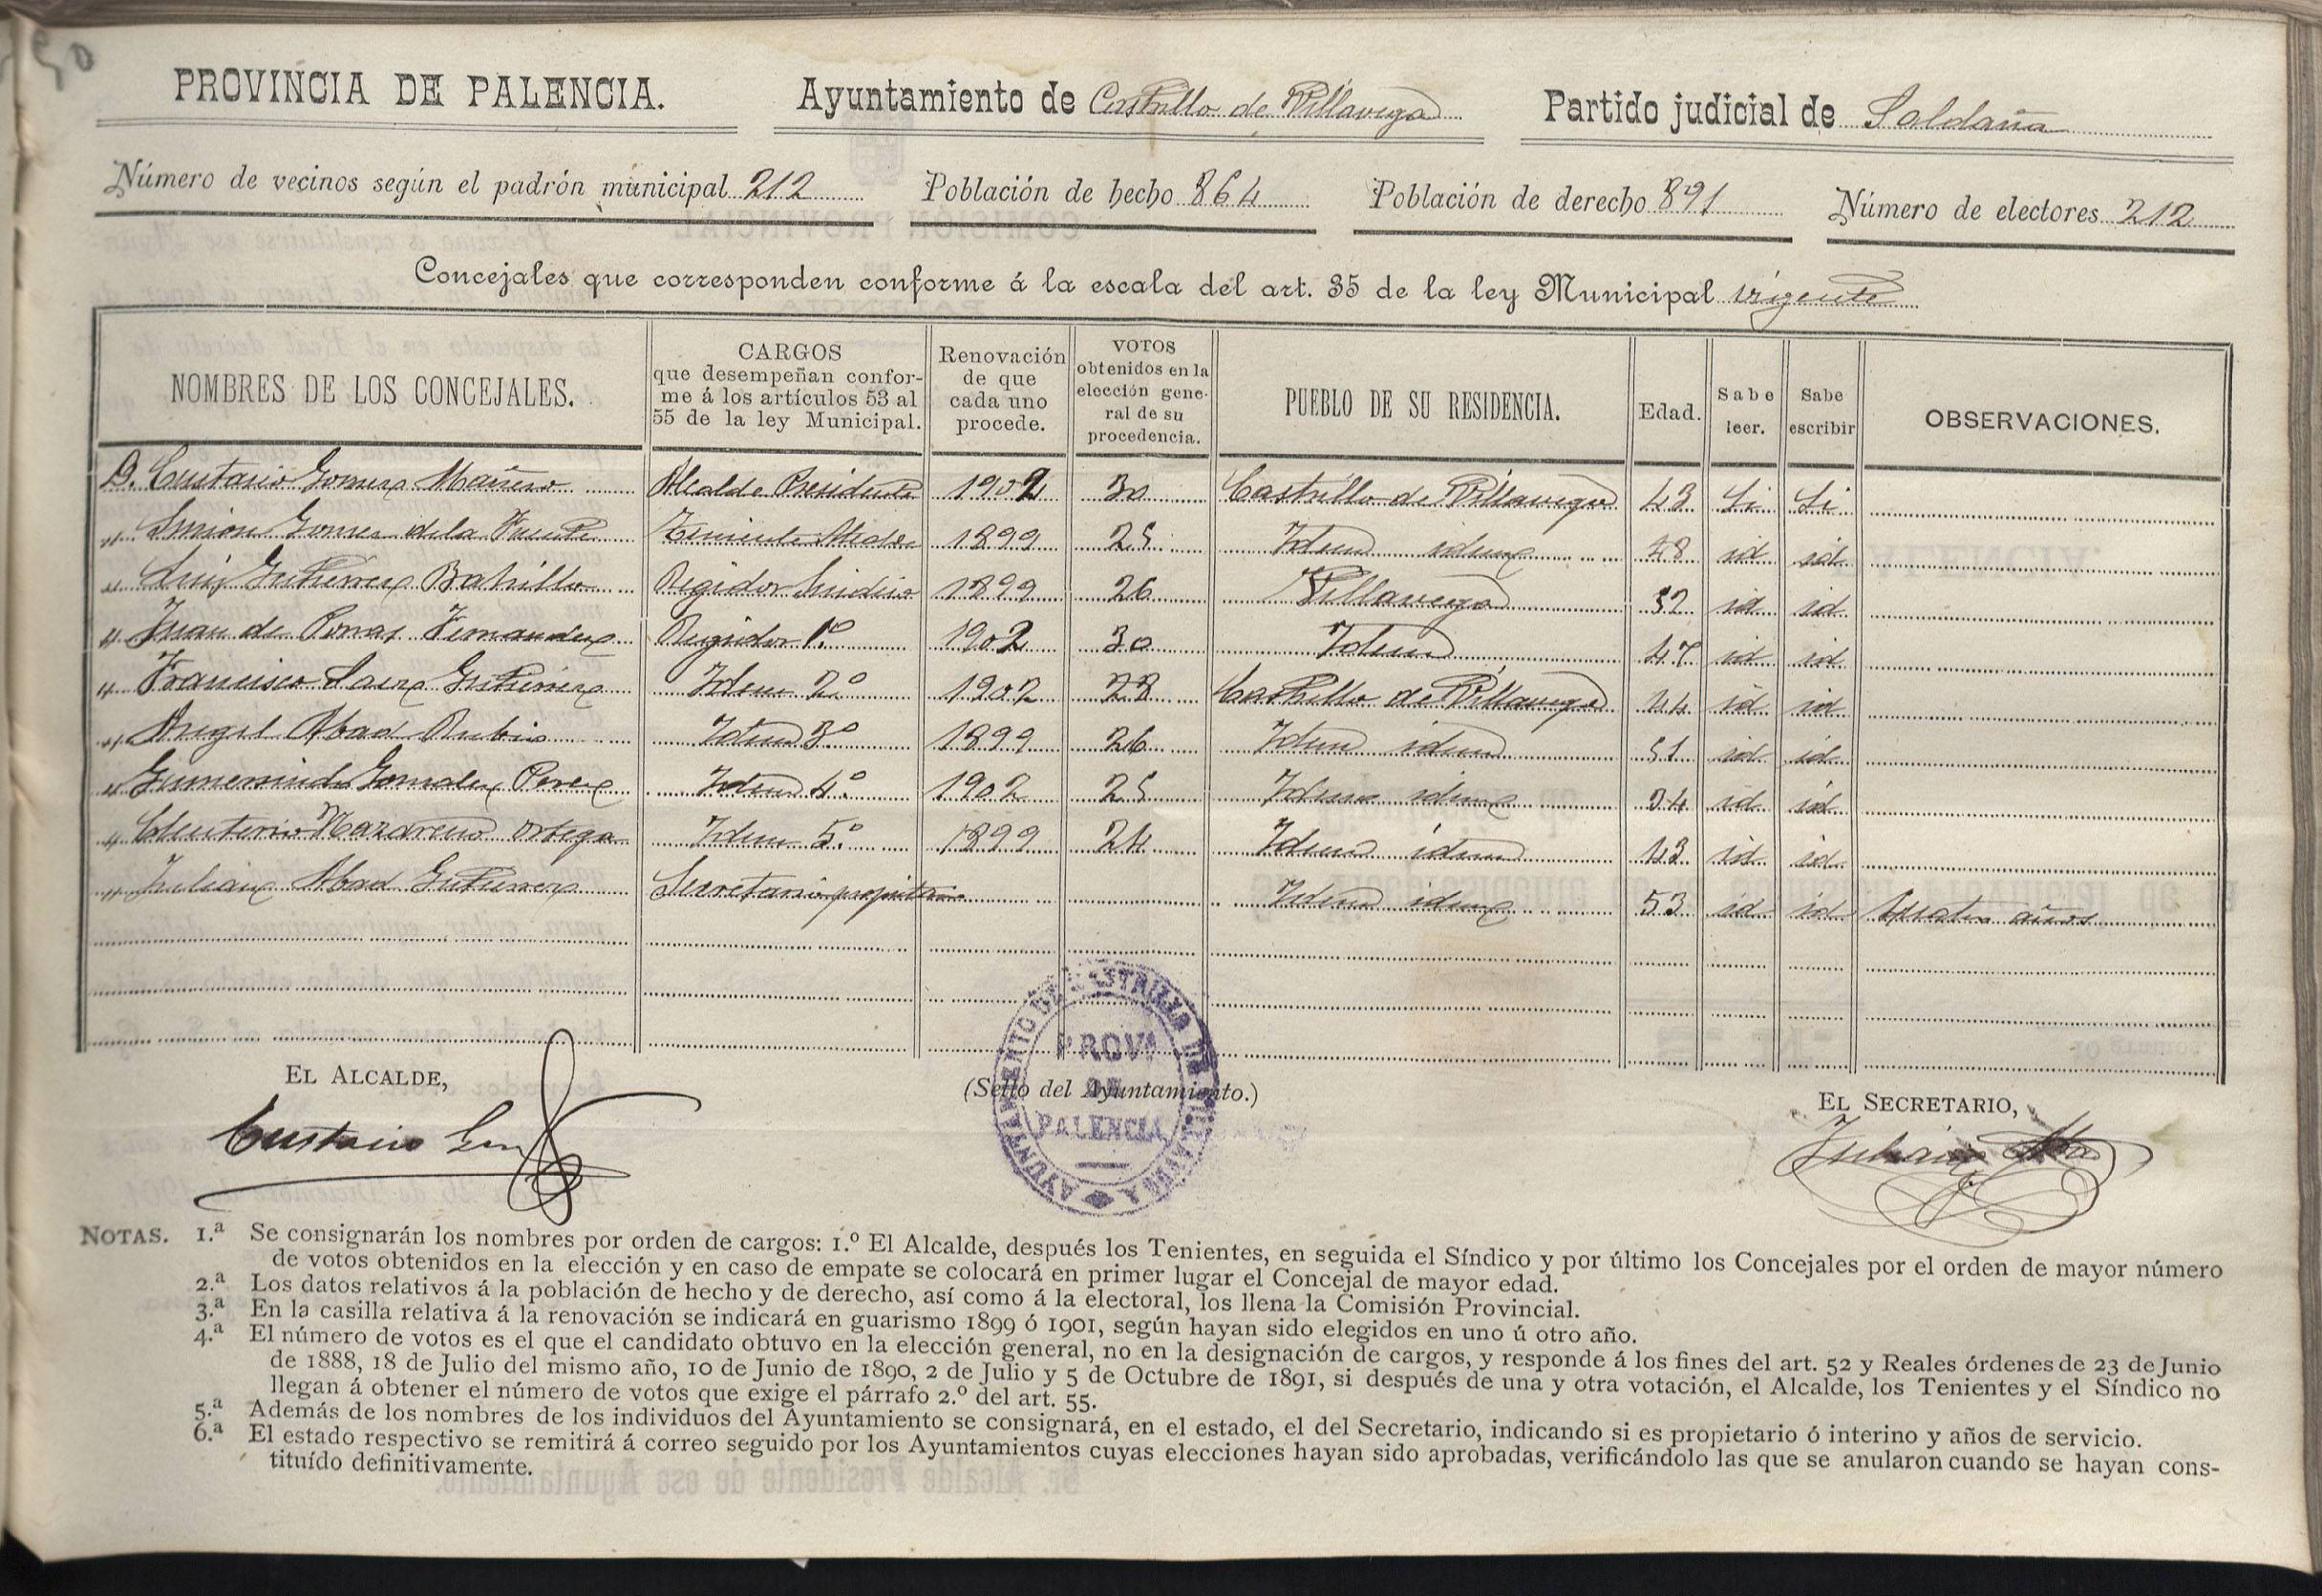 50
PROVINCIA DE PALENCIA. Ayuntamiento de Castrillo de Villavega Partido judicial de Saldaña
Número de vecinos según el padrón municipal 212 Población de hecho 864 Población de derecho 891 Número de electores 212
Concejales que corresponden conforme á la escala del art. 35 de la ley Municipal vigente
NOMBRES DE LOS CONCEJALES.
CARGOS
que desempeñan confor-
me á los artículos 53 al
55 de la ley Municipal.
Renovación
de que
cada uno
procede.
VOTOS
obtenidos en la
elección gene-
ral de su
procedencia.
PUEBLO DE SU RESIDENCIA.
Edad.
Sabe
leer.
Sabe
escribir
OBSERVACIONES.
D. Eustasio Gomez Mañero Alcalde Presidente 1902 30 Castrillo de Villavega 43 Si Si
" Simon Gomez de la Fuente Teniente Alcalde 1899 25 Idem idem 48 id id
" Luis Gutierrez Batrillo Regidor Sindico 1899 26 Villavega 52 id id
" Juan de Porras Fernandez Regidor 1.º 1902 30 Idem 47 id id
" Francisco Saez Gutierrez Idem 2º 1902 28 Castrillo de Villavega 44 id id
" Angel Abad Rubio Idem 3º 1899 26 Idem idem 51 id id
" Gumersindo Gonzalez Perez Idem 4º 1902 25 Idem idem 34 id id
" Eleuterio Nazareno Ortega Idem 5º 1899 24 Idem idem 43 id id
" Julian Abad Gutierrez Secretario propietario Idem idem 53 id id Cuatro años
EL ALCALDE,
(Sello del Ayuntamiento.)
EL SECRETARIO,
Eustasio Gomez
AYUNTAMIENTO DE CASTRILLO DE VILLAVEGA
PROVA
DE
PALENCIA
Julian Abad
NOTAS. 1.ª Se consignarán los nombres por orden de cargos: 1.º El Alcalde, después los Tenientes, en seguida el Síndico y por último los Concejales por el orden de mayor número
de votos obtenidos en la elección y en caso de empate se colocará en primer lugar el Concejal de mayor edad.
2.ª Los datos relativos á la población de hecho y de derecho, así como á la electoral, los llena la Comisión Provincial.
3.ª En la casilla relativa á la renovación se indicará en guarismo 1899 ó 1901, según hayan sido elegidos en uno ú otro año.
4.ª El número de votos es el que el candidato obtuvo en la elección general, no en la designación de cargos, y responde á los fines del art. 52 y Reales órdenes de 23 de Junio
de 1888, 18 de Julio del mismo año, 10 de Junio de 1890, 2 de Julio y 5 de Octubre de 1891, si después de una y otra votación, el Alcalde, los Tenientes y el Síndico no
llegan á obtener el número de votos que exige el párrafo 2.º del art. 55.
5.ª Además de los nombres de los individuos del Ayuntamiento se consignará, en el estado, el del Secretario, indicando si es propietario ó interino y años de servicio.
6.ª El estado respectivo se remitirá á correo seguido por los Ayuntamientos cuyas elecciones hayan sido aprobadas, verificándolo las que se anularon cuando se hayan cons-
tituído definitivamente.